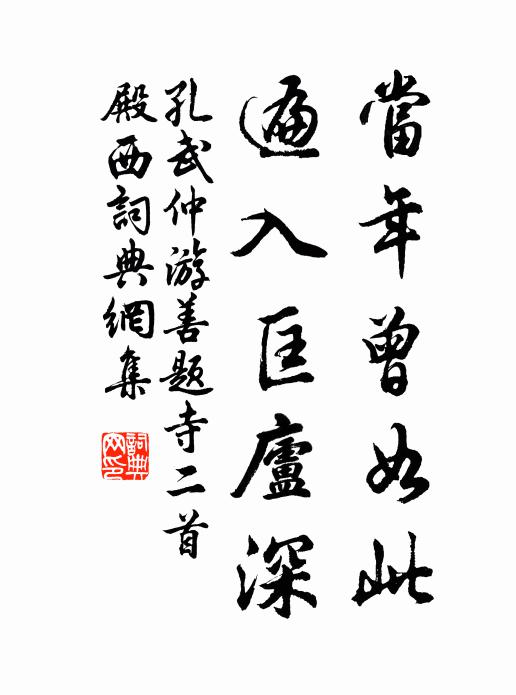 當年曾如此
遍入匡廬深
孔武仲游善題寺二首
殿西詞典網集
詞典網印